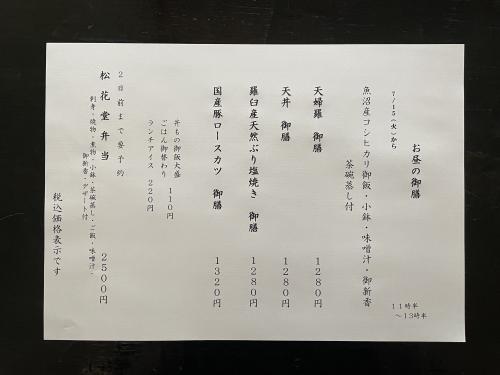 お昼の御膳
11時半
~13時半
7/15(火)から
魚沼産コシヒカリ御飯・小鉢・味噌汁・御新香
茶碗蒸し付
天婦羅 御膳 1280円
天丼 御膳 1280円
羅臼産天然ぶり塩焼き 御膳 1280円
国産豚ロースカツ 御膳 1320円
丼もの御飯大盛
ごはん御替わり 110円
ランチアイス 220円
2日前まで要予約
松花堂弁当 2500円
刺身・焼物・煮物・小鉢・茶碗蒸し・ご飯・味噌汁・
御新香・デザート付
税込価格表示です